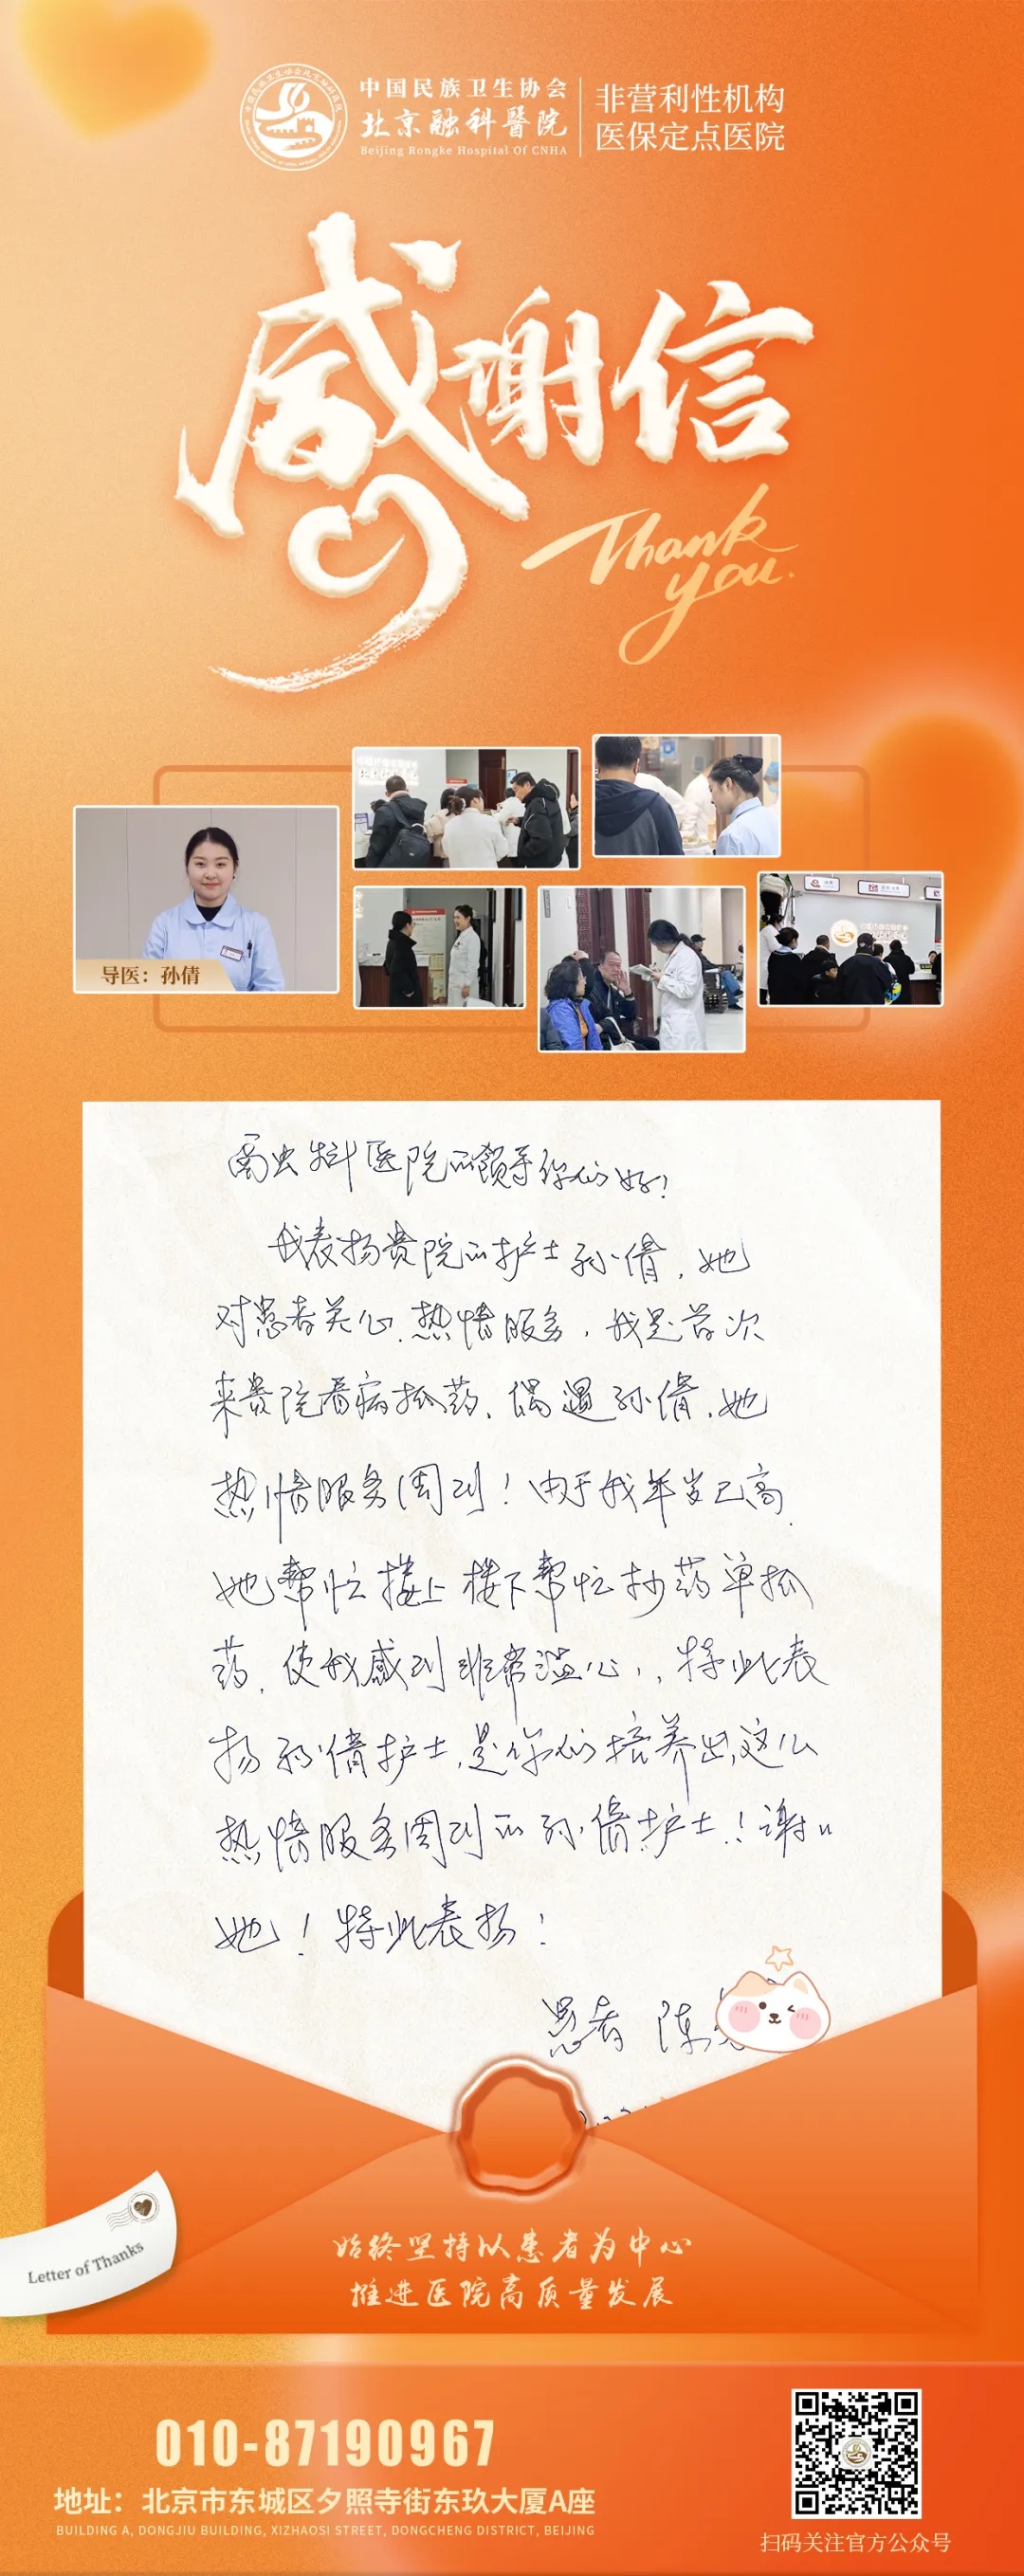 中国民族卫生协会
北京融科醫院
Beijing Rongke Hospital Of CNHA
非营利性机构
医保定点医院
感谢信
Thank
you.
导医：孙倩
融科医院的领导你们好！
我表扬贵院的护士孙倩，她
对患者关心、热情服务，我是首次
来贵院看病抓药、偶遇孙倩，她
热情服务周到！由于我年岁已高
她帮忙楼上楼下帮忙抄药单抓
药，使我感到非常温心，，特此表
扬孙倩护士，是你们培养出这么
热情服务周到的孙倩护士！谢〃
她！特此表扬！
患者 陈
始终坚持以患者为中心
推进医院高质量发展
Letter of Thanks
010-87190967
地址：北京市东城区夕照寺街东玖大厦A座
BUILDING A, DONGJIU BUILDING, XIZHAOSI STREET, DONGCHENG DISTRICT, BEIJING
扫码关注官方公众号